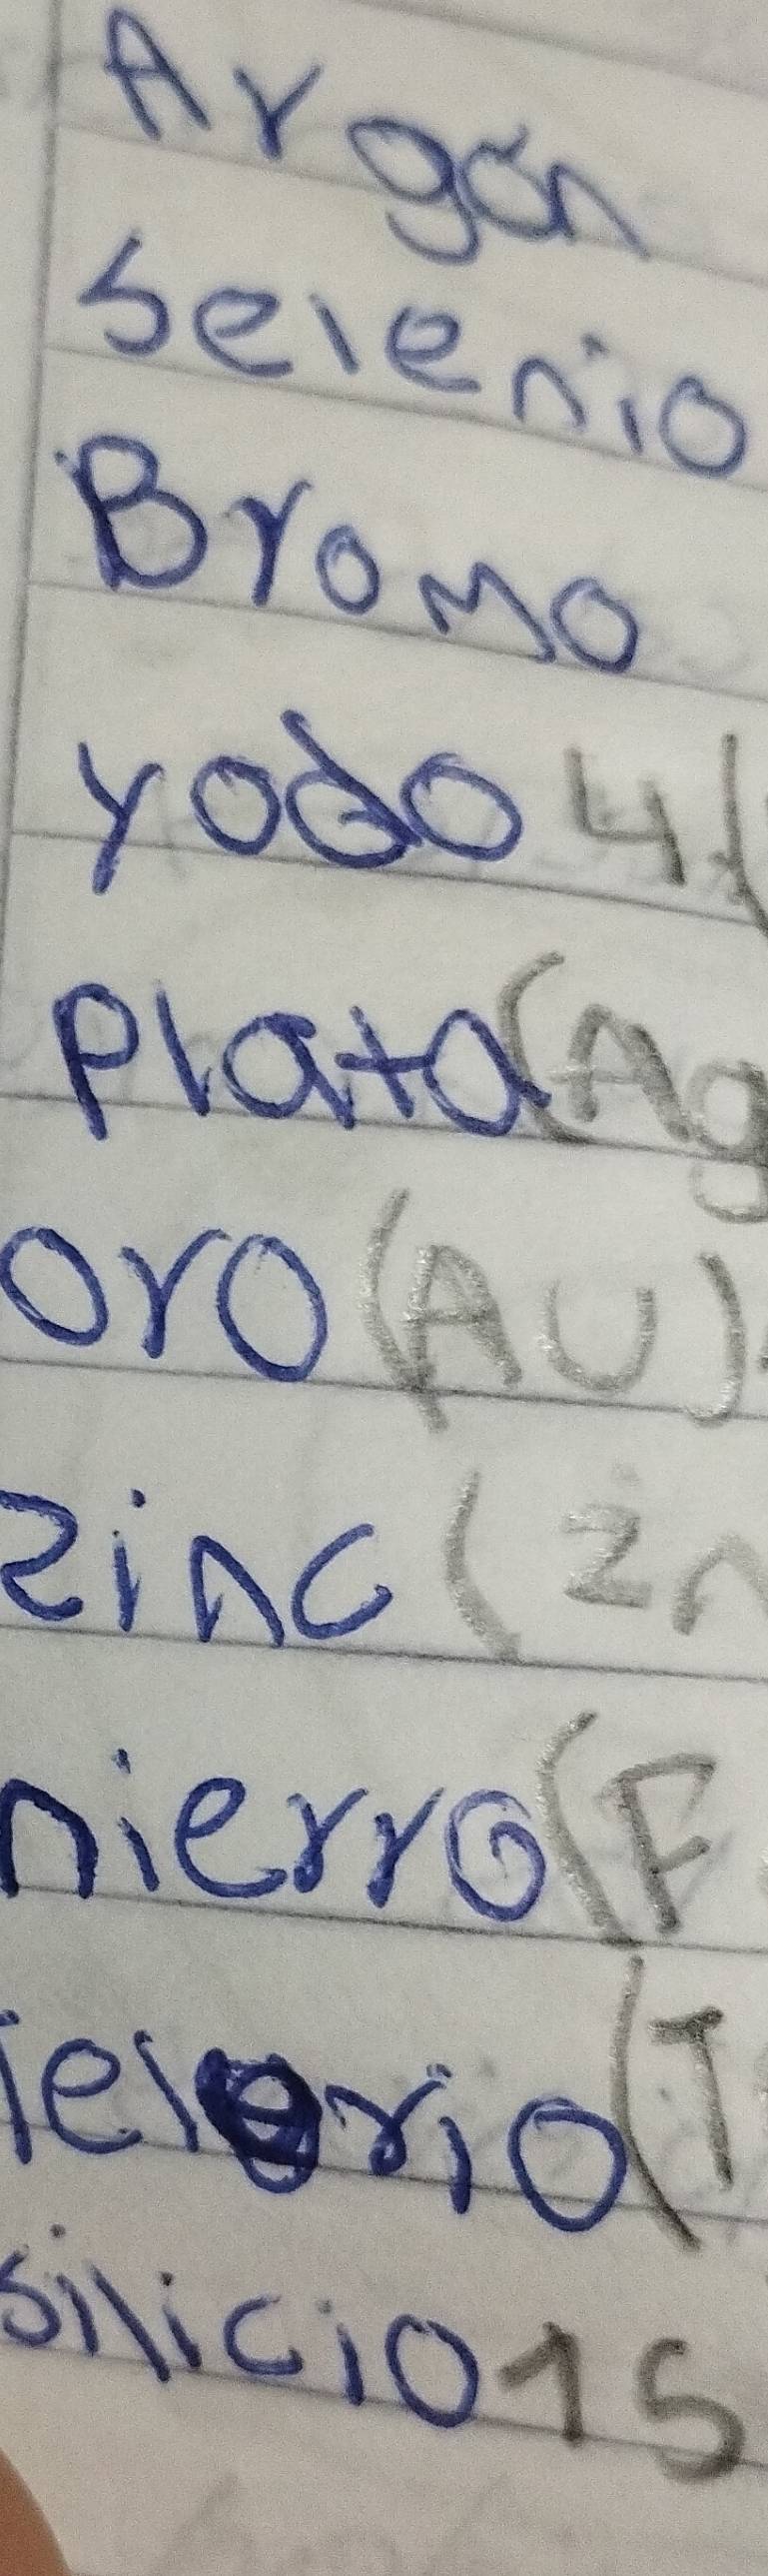 Argón
Selenio
Bromo
yodo 4(
Plata (Ag
oro (AU)
zinc (zn
hierro (F
Telerio (T
silicio 15